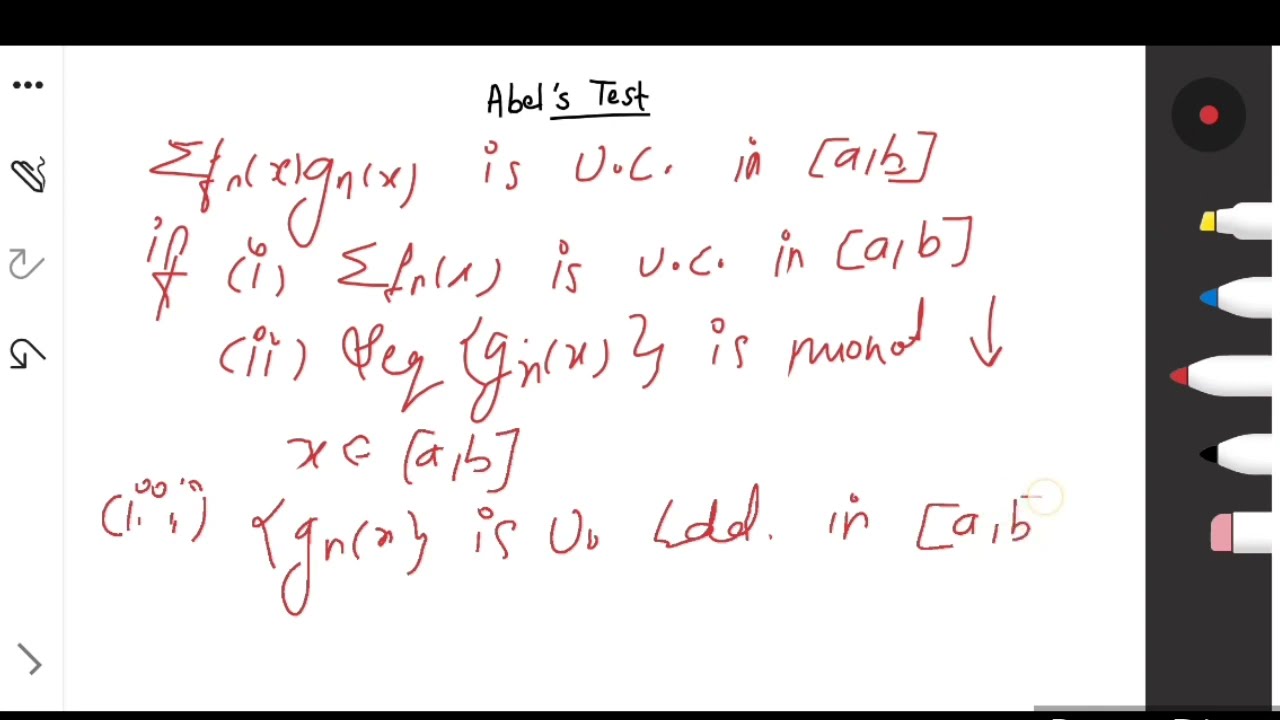 Abel's Test
Σfn(x)gn(x) is U.C. in [a,b]
if (i) Σfn(x) is U.C. in [a,b]
(ii) Seq {gn(x)} is monot ↓
x ∈ [a,b]
(iii) {gn(x)} is U. bdd. in [a,b